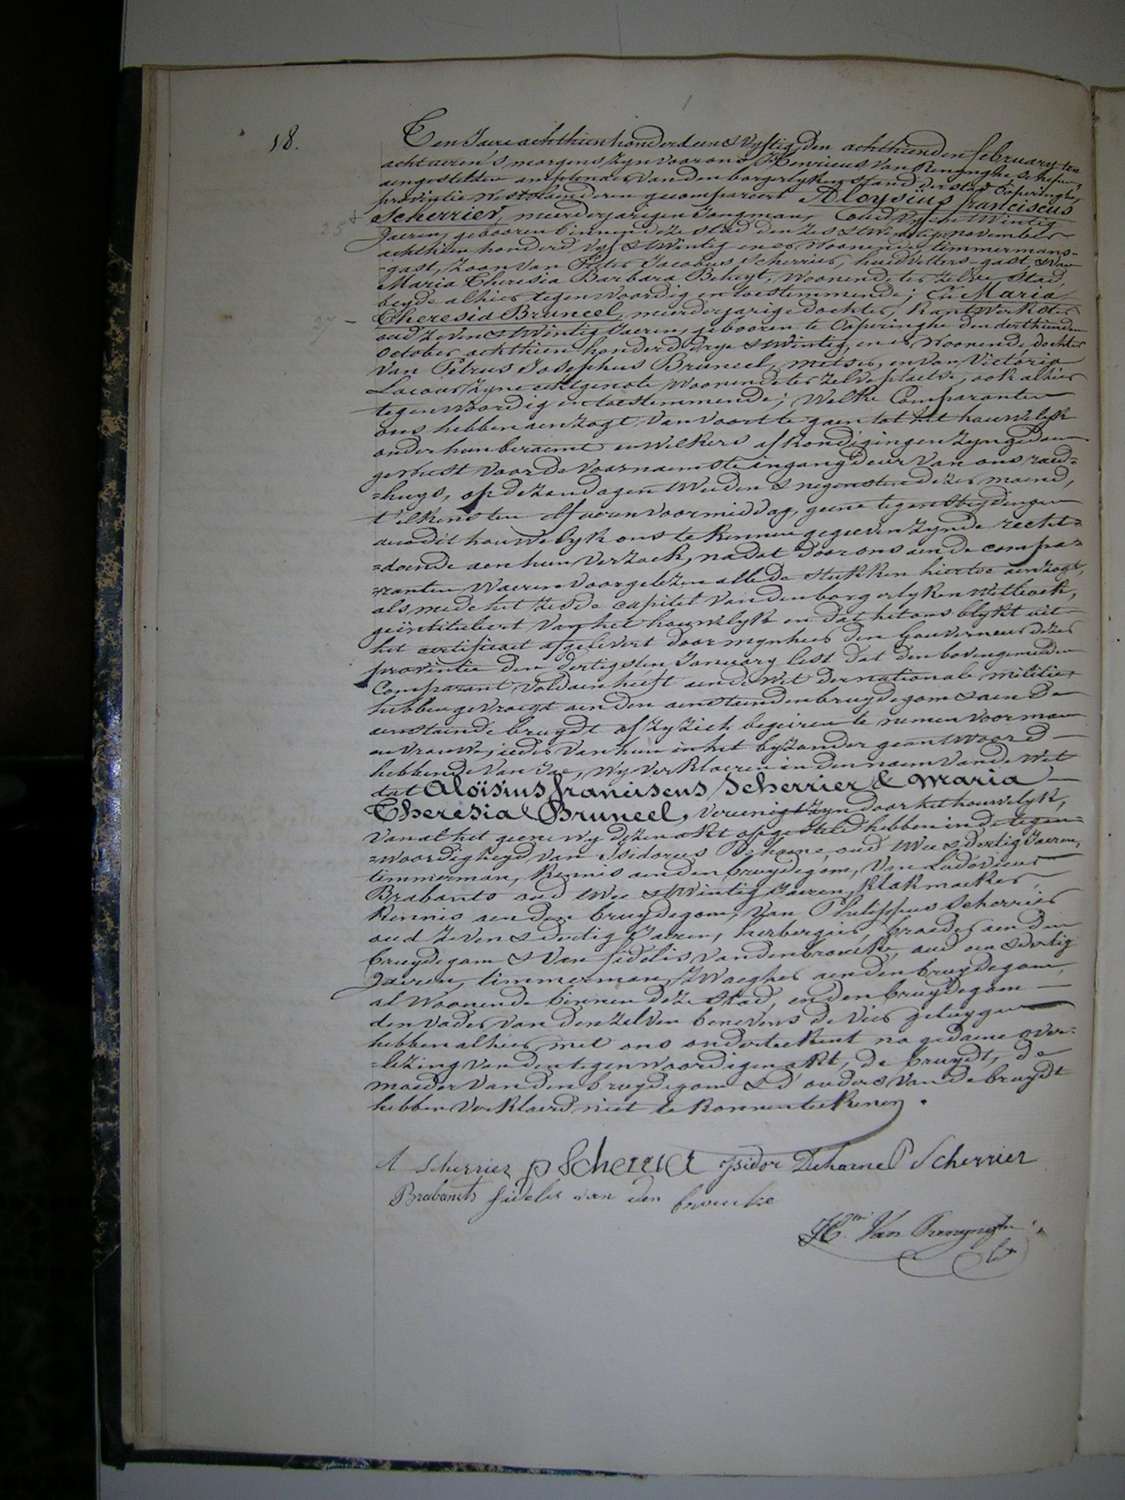 18.
Ten Jaere achthien honderd een & vyftig, den achthienden february ten
acht ueren 's morgens zyn voor ons Henricus Van Renynghe schepen,
aengestelden amptenaer van den borgerlyken stand der stad Poperinghe,
provintie Westvlaenderen gecompareert Aloysius franciscus
Scherrier, meerderjarigen Jongman, oud vyf en twintig
Jaeren, gebooren binnen deze stad den zes & twintig november
achthien honderd vyf & twintig en er woonende, timmermans-
-gast, zoon van Pieter Jacobus Scherrier, huidvetters-gast, & van
Maria Theresia Barbara Beheyt, woonende ter zelver stad,
beyde alhier tegenwoordig en toestemmende; En Maria
Theresia Bruneel, meerderjarige dochter, kantwerkster
oud zeven & twintig Jaeren, gebooren te Poperinghe den derthienden
October achthien honderd drye & twintig, en er woonende, dochter
van Petrus Josephus Bruneel, metser, en van Victoria
Lacour zyne echtgenote woonende ter zelve plaetse, ook alhier
tegenwoordig en toestemmende; Welke Comparanten
ons hebben aenzogt van voort te gaen tot het houwelyk
onder hun beraemt en welkers afkondigingen zyn gedaen
geweest voor de voornaemste ingangdeur van ons raed-
-huys, op de zondagen tweeden & negensten dezer maend,
t'elkens ten elf ueren voormiddag, geene tegenstrydingen
aen dit houwelyk ons te kennen gegeven zynde recht-
-doende aen hun verzoek, nadat door ons aen de compa-
-ranten waeren voorgelezen alle de stukken hiertoe aenzogt,
als mede het zesde capitel van den borgerlyken wetboek,
geintituleert Van het houwelyk en dat het ons blykt uit
het certificaet afgelevert door mynheer den Gouverneur dezer
provintie den dertigsten January lest dat den bovengemelden
Comparant voldaen heeft aen de wet der nationale militie
hebben gevraegt aen den aenstaenden bruydegom & aen de
aenstaende bruydt of zy zich begeiren te nemen voor man
en vrouw, ieder van hun in het byzonder geantwoord
hebbende van Jae, wy verklaeren in den naem van de wet
dat Aloïsius franciscus Scherrier & Maria
Theresia Bruneel, vereenigt zyn door het houwelyk,
van al het geene wy dezen akt opgesteld hebben in de tegen-
-woordigheyd van Isidorus Dehaene, oud twee & dertig Jaeren,
timmerman, kennis aen den bruydegom, van Ludovicus
Brabants oud twee & twintig Jaeren, klakmaeker,
kennis aen den bruydegom, van Philippus Scherrier
oud zeven & dertig Jaeren, herbergier, broeder aen den
bruydegom & van fidelis vandenbroucke, oud een & dertig
Jaeren, timmerman, zwaeger aen den bruydegom,
al woonende binnen deze stad, en den bruydegom
den vader van denzelven benevens de vier getuygen
hebben alhier met ons onderteekent na gedaene over-
-lezing van den tegenwoordigen akt, de bruydt, de
moeder van den bruydegom & d'ouders van de bruydt
hebben verklaerd niet te konnen teekenen.
A Scherrier p Scherrier Isidor Dehaene P Scherrier
Brabants fidelis van den broucke
Hri Van Renynghe